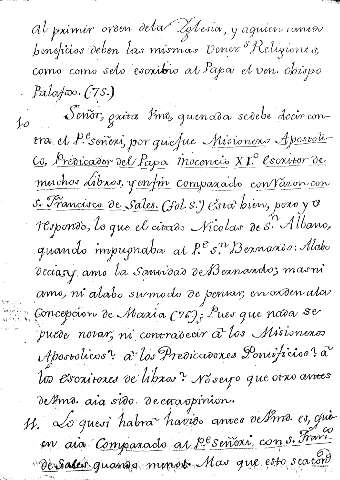 al primer orden dela Yglesia, y aquien tantos
beneficios deben las mismas Vener.s Religiones,
como como selo escribio al Papa el ven. obispo
Palafox. (75.)
10 Señor, grita Vmd, que nada se debe decir con-
tra el P.e Señeri, por que fue Misionero Apostoli-
co, Predicador del Papa Inocencio XI.o escritor de
muchos Libros, y en fin comparado con razon con
S. Francisco de Sales. (fol. 5.) Está bien, pero yo
respondo, lo que el citado Nicolas de S.n Albano,
quando impugnaba al P.e S.n Bernardo: Alabo
decia, y amo la Santidad de Bernardo; mas ni
amo, ni alabo su modo de pensar, en orden ala
Concepcion de Maria (76): Pues que nada se
puede notar, ni contradecir à los Misioneros
Apostolicos? à los Predicadores Pontificios? à
los escritores de libros? No sé yo que otro antes
de Vmd. aia sido de esta opinion.
11. Lo que si habrá havido antes de Vmd. es, quien
en aia Comparado al P.e Señeri, con S. Franco
de Sales quando menos. Mas que esto